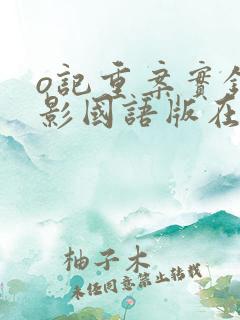 o記重案實錄
影國語版在
柚子木
未經同意禁止轉載